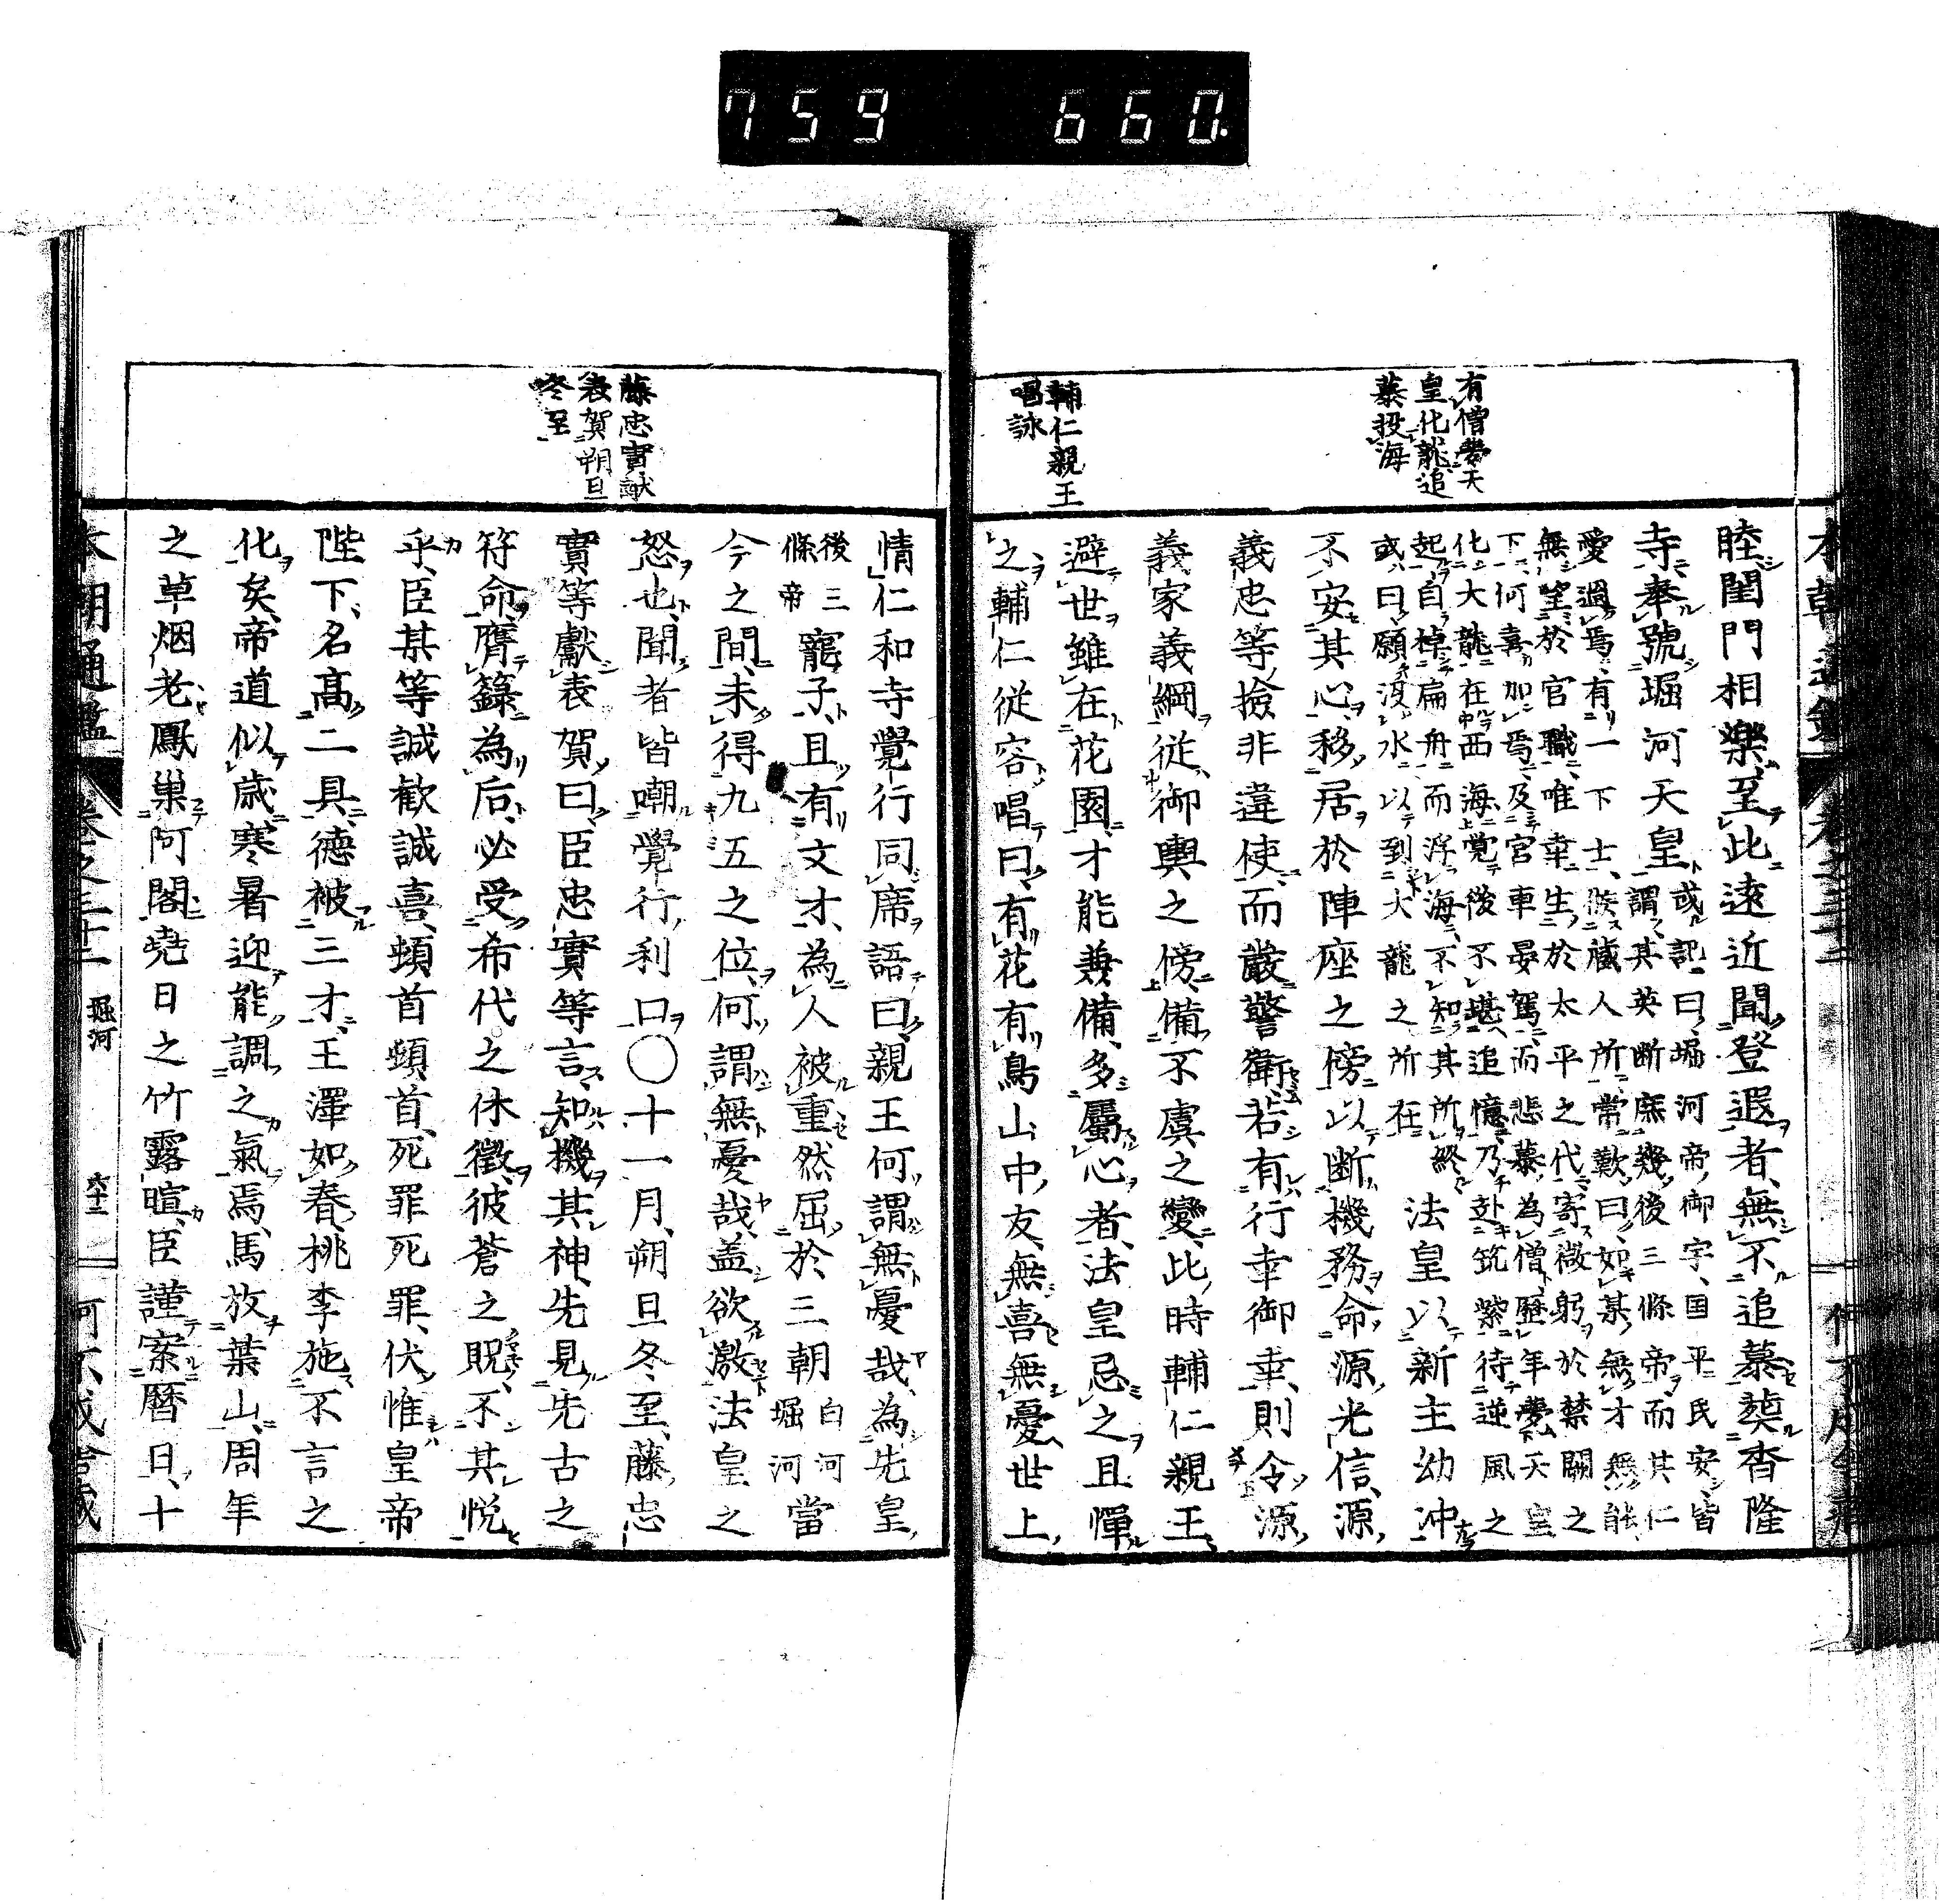 759 660.
有僧夢天
皇化龍追
慕投海
輔仁親王
唱詠
睦閨門相樂至此遠近聞登遐者無不追慕葬香隆
寺奉號堀河天皇
或記曰堀河帝御宇国平民安皆
謂其英断庶幾後三條帝而其仁
愛過焉有一下士候蔵人所常歎曰如某無才無能
無望於官職唯幸生於太平之代寄微躬於禁闕之
下何喜加焉及官車晏駕而悲慕為僧歴年夢天皇
化大龍在西海覺後不堪追憶乃赴筑紫待逆風之
起自棹扁舟而浮海不知其所終
或曰願没水以到大龍之所在
法皇以新主幼冲
不安其心移居於陣座之傍以断機務命源光信源
義忠等撿非違使而嚴警衛若有行幸御幸則令源
義家義綱従御輿之傍備不虞之變此時輔仁親王
避世雖在花園才能兼備多屬心者法皇忌之且憚
之輔仁従容唱曰有花有鳥山中友無喜無憂世上
藤忠實献
表賀朔旦
冬至
情仁和寺覺行同席語曰親王何謂無憂哉為先皇
後三
條帝
寵子且有文才為人被重然屈於三朝
白河
堀河
當
今之間未得九五之位何謂無憂哉盖欲激法皇之
怒也聞者皆嘲覺行利口〇十一月朔旦冬至藤忠
實等獻表賀曰臣忠實等言知機其神先見先古之
符命膺籙為后必受希代之休徵彼蒼之貺不其悦
乎臣某等誠歓誠喜頓首頓首死罪死罪伏惟皇帝
陛下名髙二具德被三才王澤如春桃李施不言之
化矣帝道似歳寒暑迎能調之氣焉馬放葉山周年
之草烟老鳳巢阿閣堯日之竹露暄臣謹案暦日十
本朝通鑑 卷之三十二 堀河 六十二